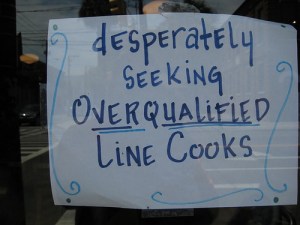 desperately
SEEKING
OVERQUALIFIED
LINE COOKS